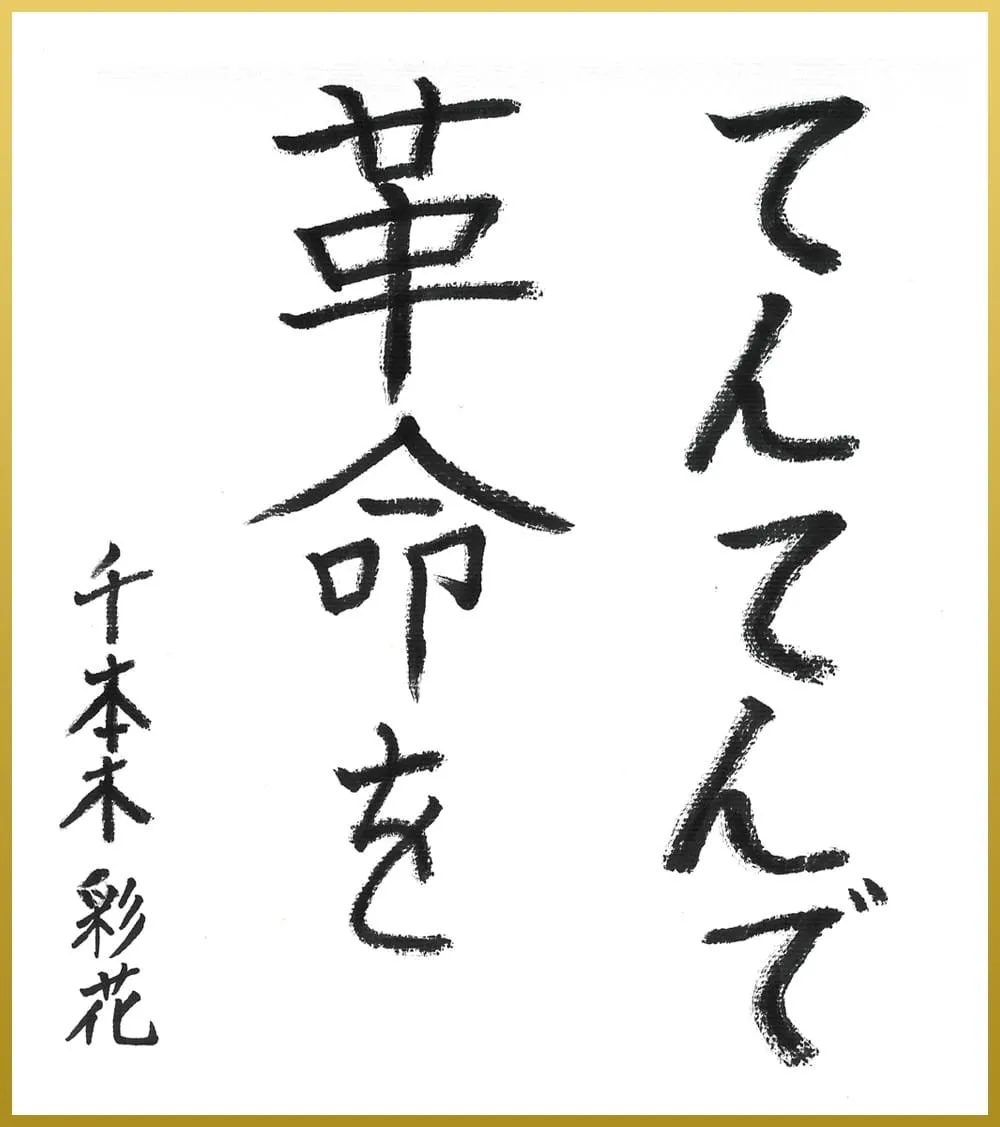 てんてんで
革命を
千本木彩花